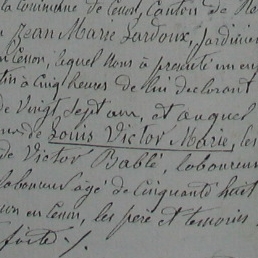 la Commune de Cesson, Canton de
Jean Marie Lardoux, jardinier
en Cesson, lequel nous a présenté un en
tin à cinq heures de lui déclarant
de Vingt sept ans, et auquel
de Louis Victor Marie, les
de Victor Bablé, laboureur
laboureur âgé de Cinquante huit
en Cesson, les père et témoins